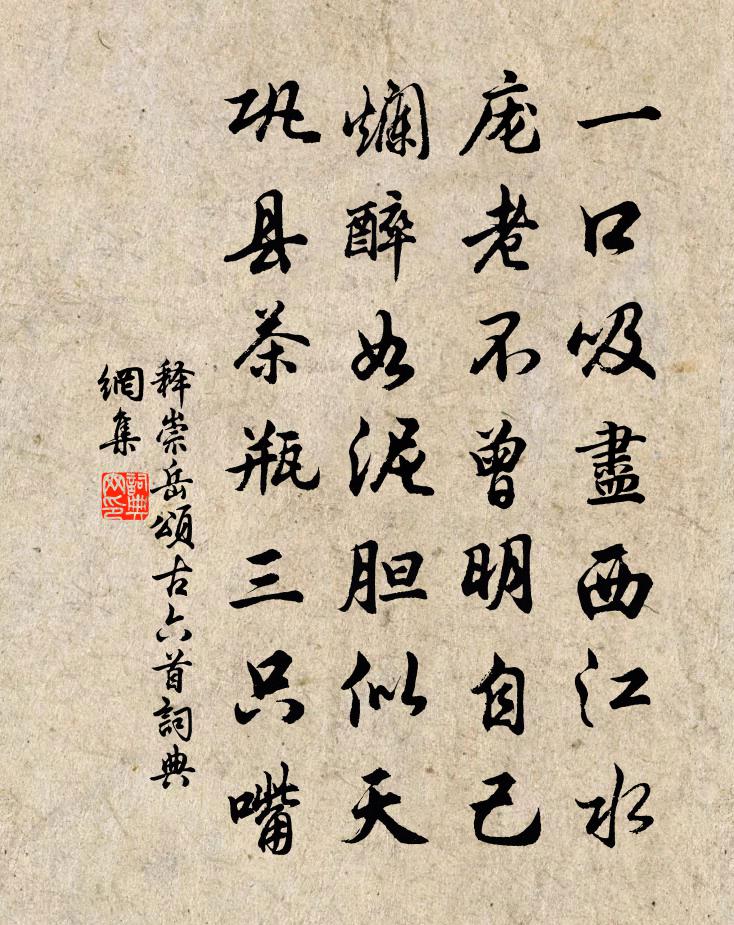 一口吸盡西江水
庞老不曾明自己
爛醉如泥胆似天
巩县茶瓶三只嘴
释崇岳頌古六首詞典
網集
詞典網印